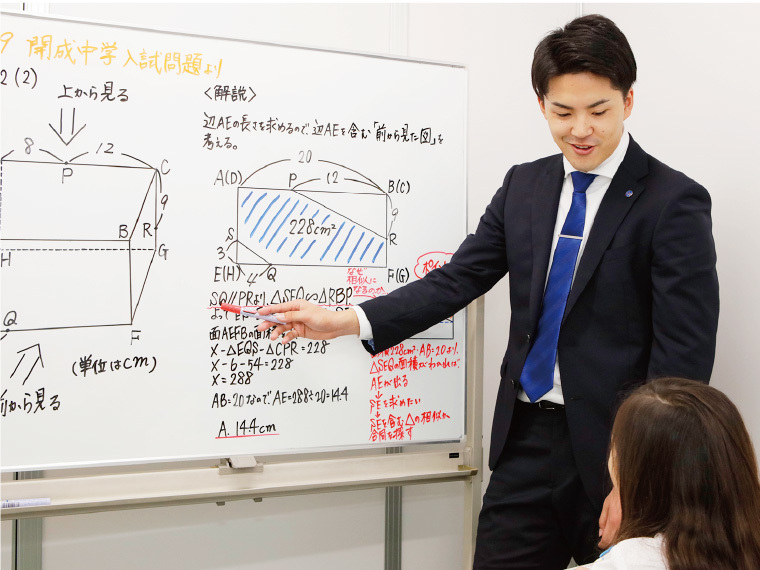 9 開成中学入試問題より
2 (2)
上から見る
8
12
P
C
9
B
R
H
G
Q
F
(単位はcm)
前から見る
<解説>
辺AEの長さを求めるので、辺AEを含む「前から見た図」を
考える。
20
A(D)
P
12
B(C)
9
228cm²
S
R
3
E(H)
4
Q
F(G)
なぜ
相似に
なるのか
SQ//PRより、△SEQ∽△RBP
面AEFBの面積
X-△EQS-△CPR=228
X-6-54=228
X=288
AB=20なので、AE=288÷20=14.4
A. 14.4cm
228cm²・AB=20より、
△SEQの面積がわかれば、
AEが出る
↓
SEを求めたい
↓
SEを含む△の相似か
合同を探す